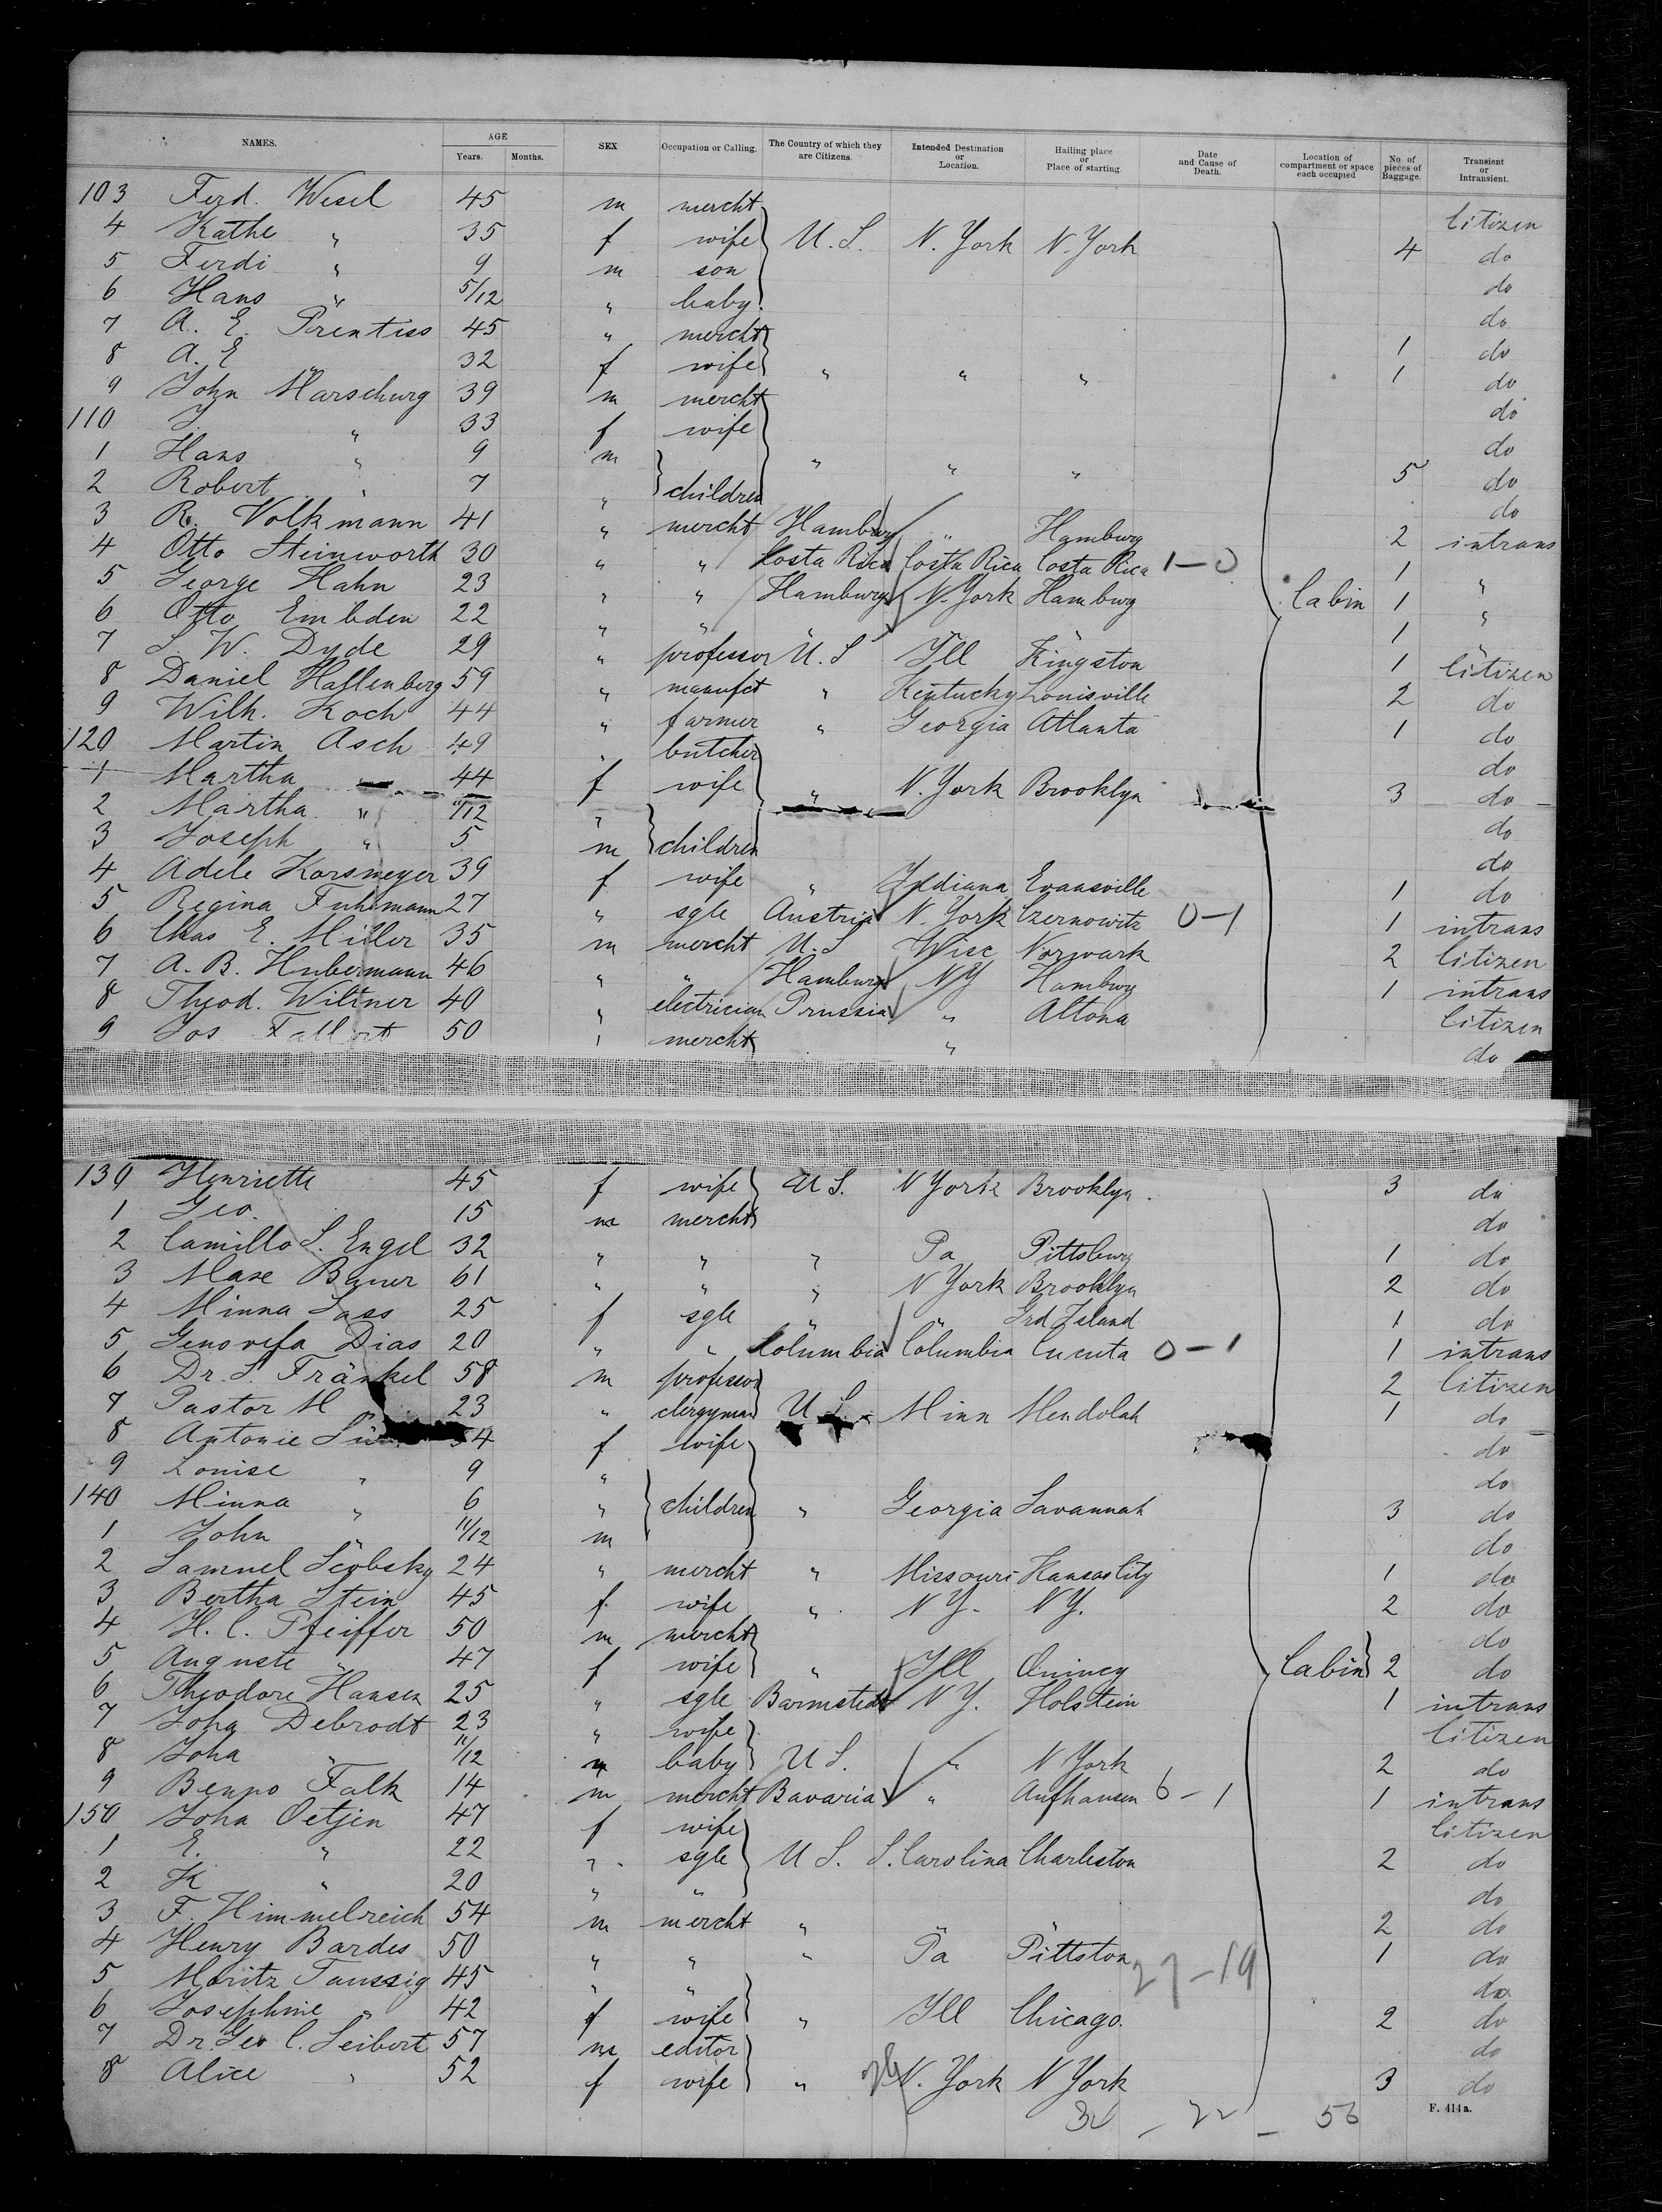 NAMES. AGE Years. Months. SEX Occupation or Calling. The Country of which they are Citizens. Intended Destination or Location. Hailing place or Place of starting. Date and Cause of Death. Location of compartment or space each occupied No. of pieces of Baggage. Transient or Intransient.
103 Ferd. Wesel 45 m mercht Citizen
4 Kathe " 35 f wife U.S. N. York N. York 4 do
5 Ferdi " 9 m son do
6 Hans " 5/12 " baby do
7 A. E. Prentiss 45 " mercht 1 do
8 A. E " 32 f wife " " " 1 do
9 John Marschurg 39 m mercht do
110 J. " 33 f wife do
1 Hans " 9 m " " " 5 do
2 Robert " 7 " children do
3 R. Volkmann 41 " mercht Hamburg " Hamburg 2 intrans
4 Otto Steinworth 30 " " Costa Rica Costa Rica Costa Rica 1-0 1 "
5 George Hahn 23 " " Hamburg N. York Hamburg Cabin 1 "
6 Otto Embden 22 " " " " " 1 "
7 S. W. Dyde 29 " professor U.S Ill Kingston 1 Citizen
8 Daniel Hallenberg 59 " manufct " Kentucky Louisville 2 do
9 Wilh. Koch 44 " farmer " Georgia Atlanta 1 do
120 Martin Asch 49 " butcher do
1 Martha " 44 f wife " N. York Brooklyn 3 do
2 Martha " 11/12 " do
3 Joseph " 5 m children do
4 Adele Korsmeyer 39 f wife " Indiana Evansville 1 do
5 Regina Fuhrmann 27 " sgle Austria N. York Czernowitz 0-1 1 intrans
6 Chas E. Miller 35 m mercht U.S Wisc Norwark 2 Citizen
7 A. B. Hubermann 46 " " Hamburg NY Hamburg 1 intrans
8 Theod. Wiltner 40 " electrician Prussia " Altona Citizen
9 Jos Fallert 50 " mercht " do
130 Henriette 45 f wife U S. N York Brooklyn. 3 do
1 Geo. 15 m mercht do
2 Camillo S. Engel 32 " " " Pa Pittsburg 1 do
3 Max Bauer 61 " " " N York Brooklyn 2 do
4 Minna Lass 25 f sgle " " Grd Island 1 do
5 Genovefa Dias 20 " " Columbia Columbia Cucuta 0-1 1 intrans
6 Dr. S. Fränkel 58 m professor 2 Citizen
7 Pastor M " 23 " clergyman U S. Minn Mendolah 1 do
8 Antonie 34 f wife do
9 Louise " 9 " do
140 Minna " 6 " children " Georgia Savannah 3 do
1 John " 11/12 m do
2 Samuel Scobsky 24 " mercht " Missouri Kansas City 1 do
3 Bertha Stein 45 f wife " N Y. N Y. 2 do
4 H. C. Pfeiffer 50 m mercht do
5 Auguste " 47 f wife " Ill Quincy Cabin 2 do
6 Theodore Hansen 25 " sgle Barmstedt N Y. Holstein 1 intrans
7 Joha Debrodt 23 " wife Citizen
8 Joha " 11/12 m baby U S. " N York 2 do
9 Benno Falk 14 m mercht Bavaria " Aufhausen 6-1 1 intrans
150 Joha Oetjin 47 f wife Citizen
1 E. " 22 " sgle U S. S. Carolina Charleston 2 do
2 K " 20 " " do
3 F. Himmelreich 54 m mercht " " " 2 do
4 Henry Bardes 50 " " " Pa Pittston 1 do
27-19
5 Moritz Taussig 45 " " do
6 Josephine " 42 f wife " Ill Chicago. 2 do
7 Dr. Geo C. Seibert 57 m editor do
8 Alice " 52 f wife " N. York N York 3 do
F. 414a.